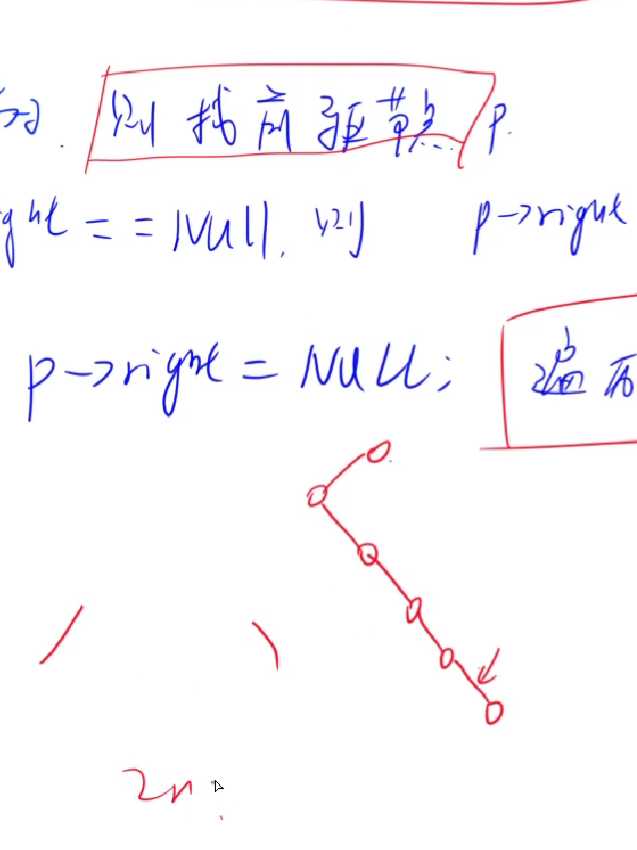 则 找前驱节点 p.
ght == Null, 则 p->right
p->right = NULL; 遍历
2n.